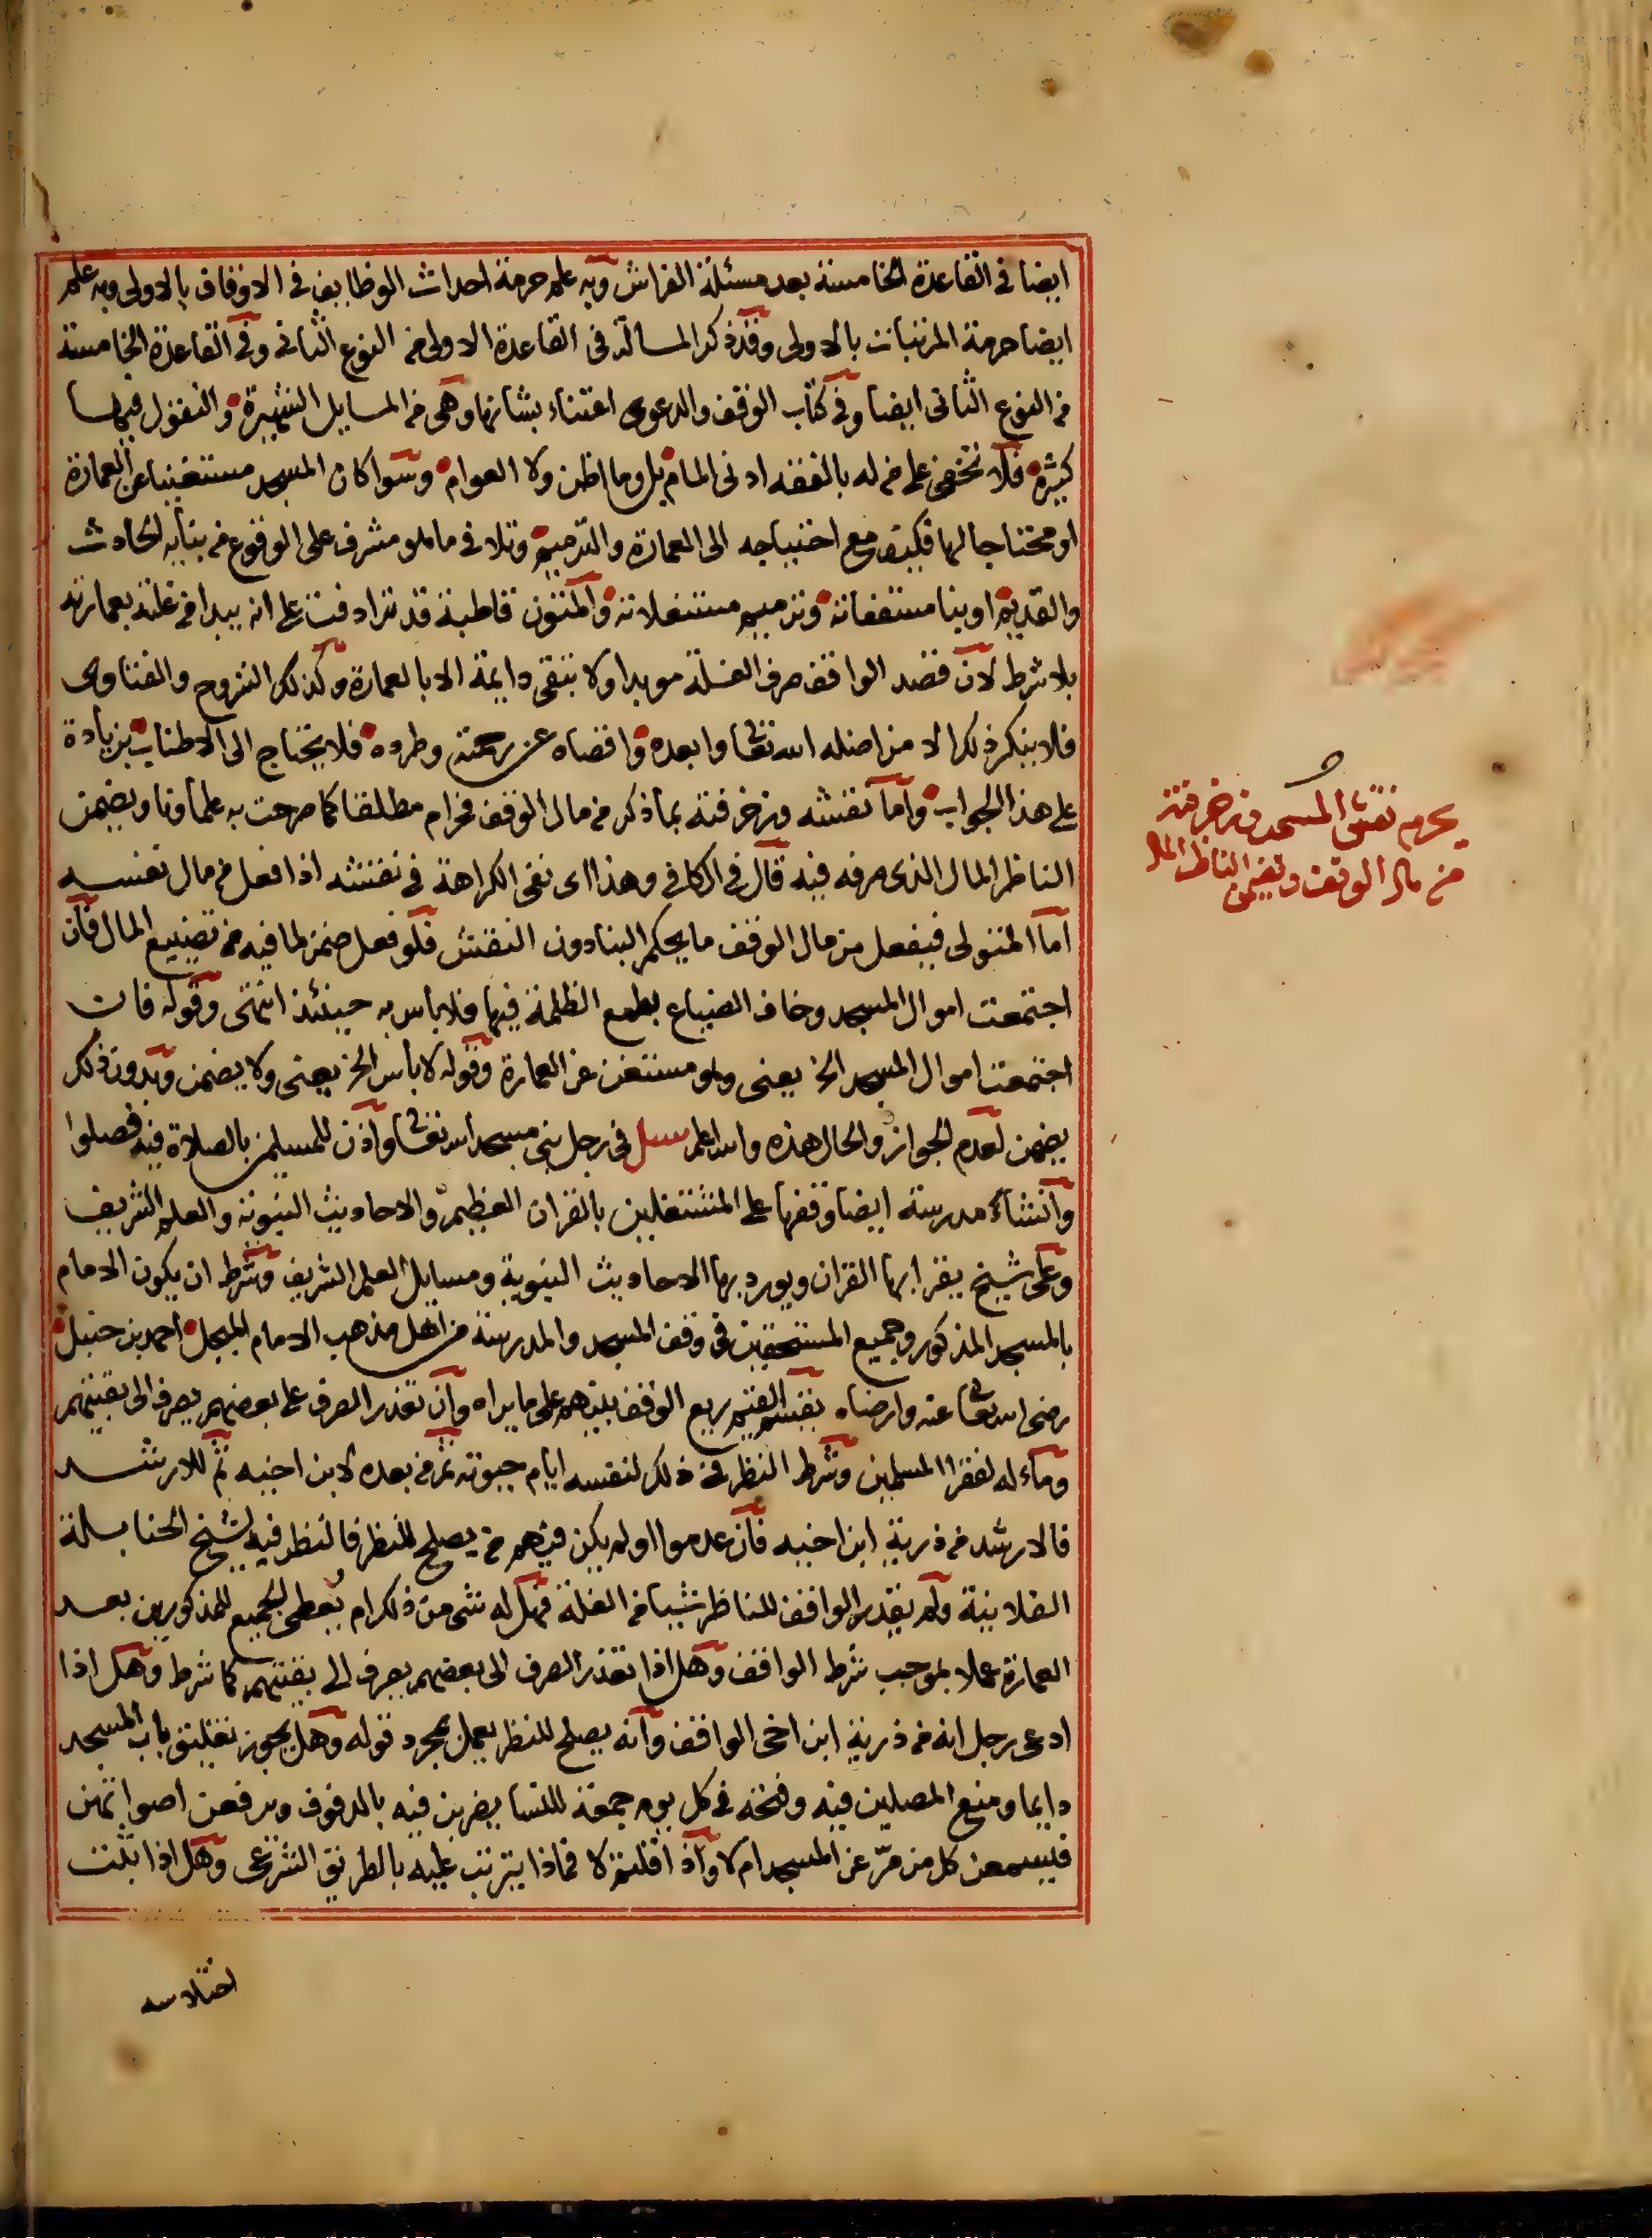 ايضا في القاعدة الخامسة بعد مسئلة الفراش وبه علم حرمة احداث الوظايف في الاوقاف بالاولى وبه علم
ايضا حرمة المرتبات بالاولى وقد ذكر المسالة في القاعدة الاولى من النوع الثاني وفي القاعدة الخامسة
من النوع الثاني ايضا وفي كتاب الوقف والدعوى اعتناء بشانها وهي من المسايل الشهيرة والنقول فيها
كثيرة فلا تخفى على من له بالفقه ادنى المام بل وما اظن ولا العوام وسوا كان المسجد مستغنيا عن العمارة
او محتاجا لها فكيف مع احتياجه الى العمارة والترميم وتلافي ما هو مشرف على الوقوع من بنايه الحادث
والقديم او بنا مسقفاته وترميم مستغلاته والمتون قاطبة قد ترادفت على انه يبدا من غلته بعمارته
بلا شرط لان قصد الواقف صرف الغلة موبدا ولا تبقى دايمة الا بالعمارة وكذلك الشروح والفتاوى
فلا ينكر ذلك الا من اضله الله تعالى وابعده واقصاه عن رحمته وطرده فلا يحتاج الى الاطناب بزيادة
على هذا الجواب واما نقشه وزخرفته بما ذكر من مال الوقف فحرام مطلقا كما صرحت به علماونا ويضمن
الناظر المال الذي صرفه فيه قال في الكافي وهذا اي نفي الكراهة في نقشه اذا فعل من مال نفسه
اما المتولي فيفعل من مال الوقف ما يحكم البنا دون النقش فلو فعل ضمن لما فيه من تضييع المال فان
اجتمعت اموال المسجد وخاف الضياع بطمع الظلمة فيها فلا باس به حينئذ انتهى وقوله فان
اجتمعت اموال المسجد الخ يعني وهو مستغن عن العمارة وقوله لا بأس الخ يعني ولا يضمن وبدون ذلك
يضمن لعدم الجواز والحال هذه والله اعلم سئل في رجل بنى مسجدا لله تعالى واذن للمسلمين بالصلاة فيه فصلوا
وانشاء مدرسة ايضا وقفها على المشتغلين بالقران العظيم والاحاديث النبوية والعلم الشريف
وعلى شيخ يقرا بها القران ويورد بها الاحاديث النبوية ومسايل العلم الشريف وشرط ان يكون الامام
بالمسجد المذكور وجميع المستحقين في وقف المسجد والمدرسة من اهل مذهب الامام المبجل احمد بن حنبل
رضى الله تعالى عنه وارضاه يقسم القيم ريع الوقف بينهم على ما يراه وان تعذر الصرف على بعضهم يصرف الى بقيتهم
وماءله لفقرا المسلمين وشرط النظر في ذلك لنفسه ايام حيوته ثم من بعده لابن اخيه ثم للارشد
فالارشد من ذرية ابن اخيه فان عدموا او لم يكن فيهم من يصلح للنظر فالنظر فيه لشيخ الحنابلة
الفلانية ولم يقدر الواقف للناظر شيا من الغلة فهل له شي من ذلك ام يعطى الجميع للمذكورين بعد
العمارة عملا بموجب شرط الواقف وهل اذا تعذر الصرف الى بعضهم يصرف الى بقيتهم كما شرط وهل اذا
ادعى رجل انه من ذرية ابن اخي الواقف وانه يصلح للنظر يعمل بمجرد قوله وهل يجوز تغليق باب المسجد
دايما ومنع المصلين فيه وفتحه في كل يوم جمعة للنسا يضربن فيه بالدفوف ويرفعن اصواتهن
فيسمعن كل من مر عن المسجد ام لا واذا قلتم لا فماذا يترتب عليه بالطريق الشرعي وهل اذا ثبت
يحرم نقش المسجد وزخرفته
من مال الوقف ويضمن الناظر المال
اختلاسه